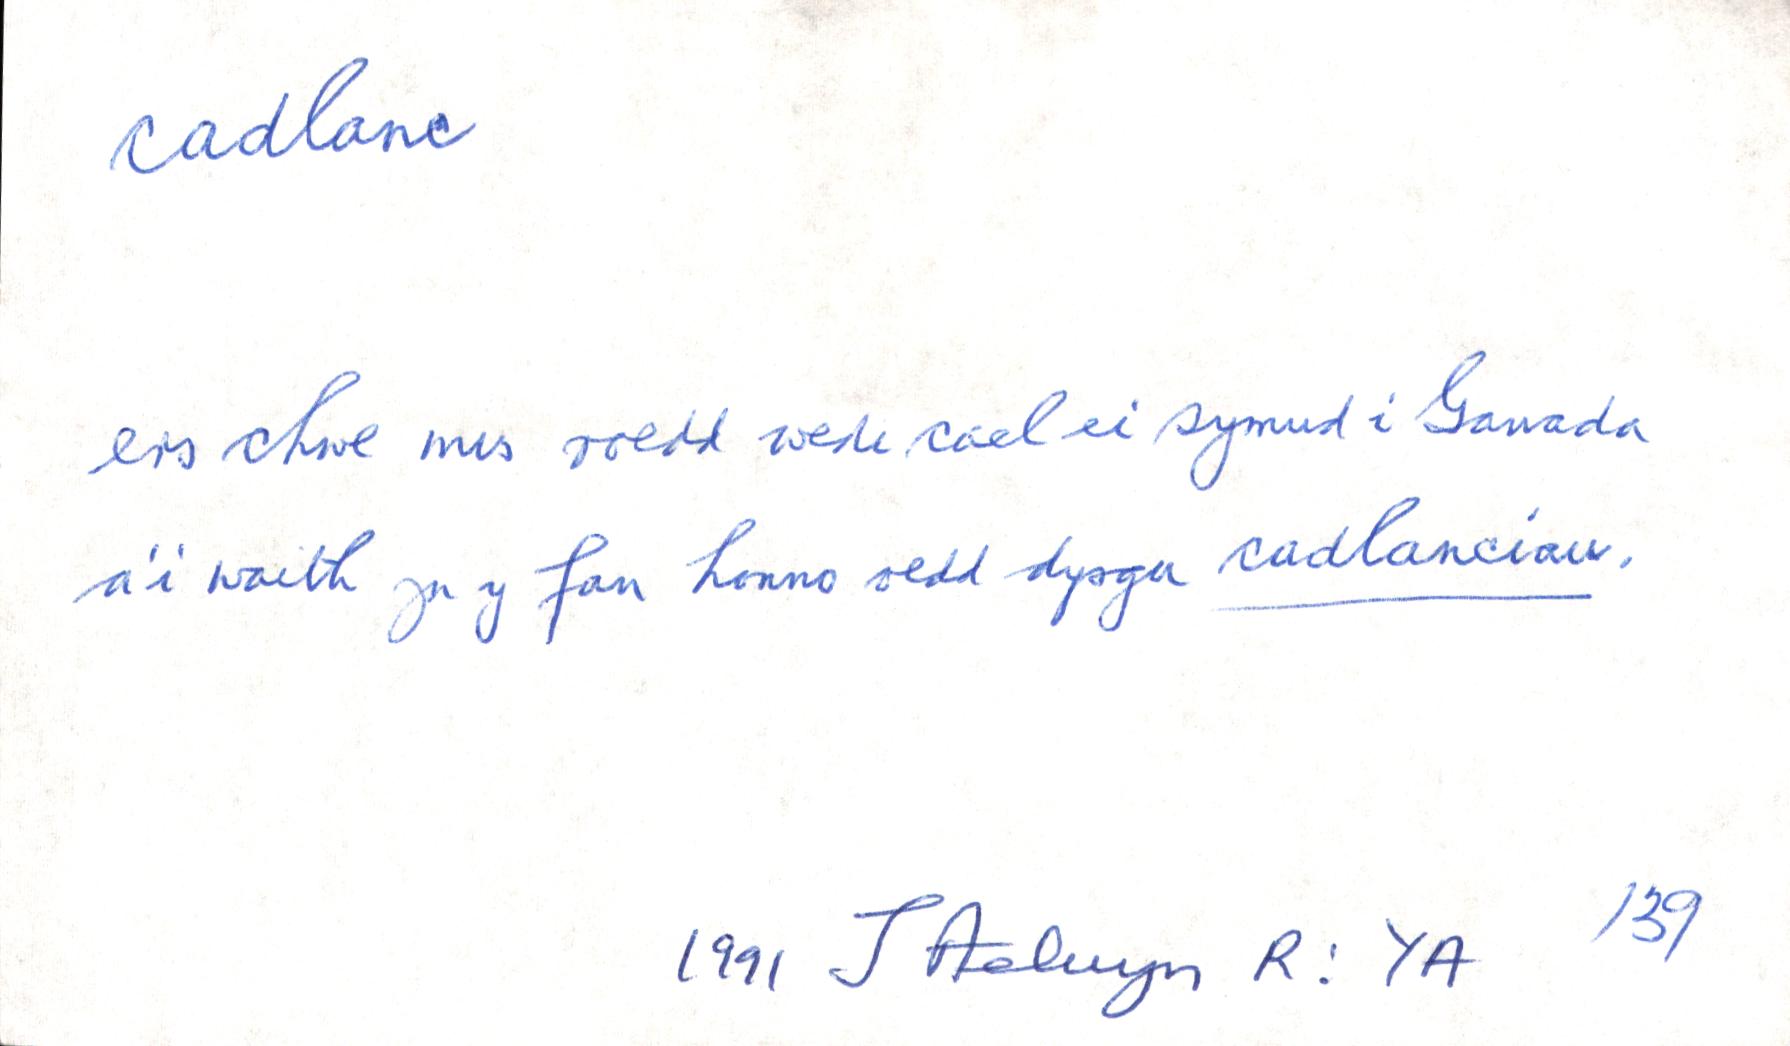 cadlanc
ers chwe mis roedd wedi cael ei symud i Ganada
a'i waith yn y fan honno oedd dysgu cadlanciau.
1991 J Aelwyn R: YA 139